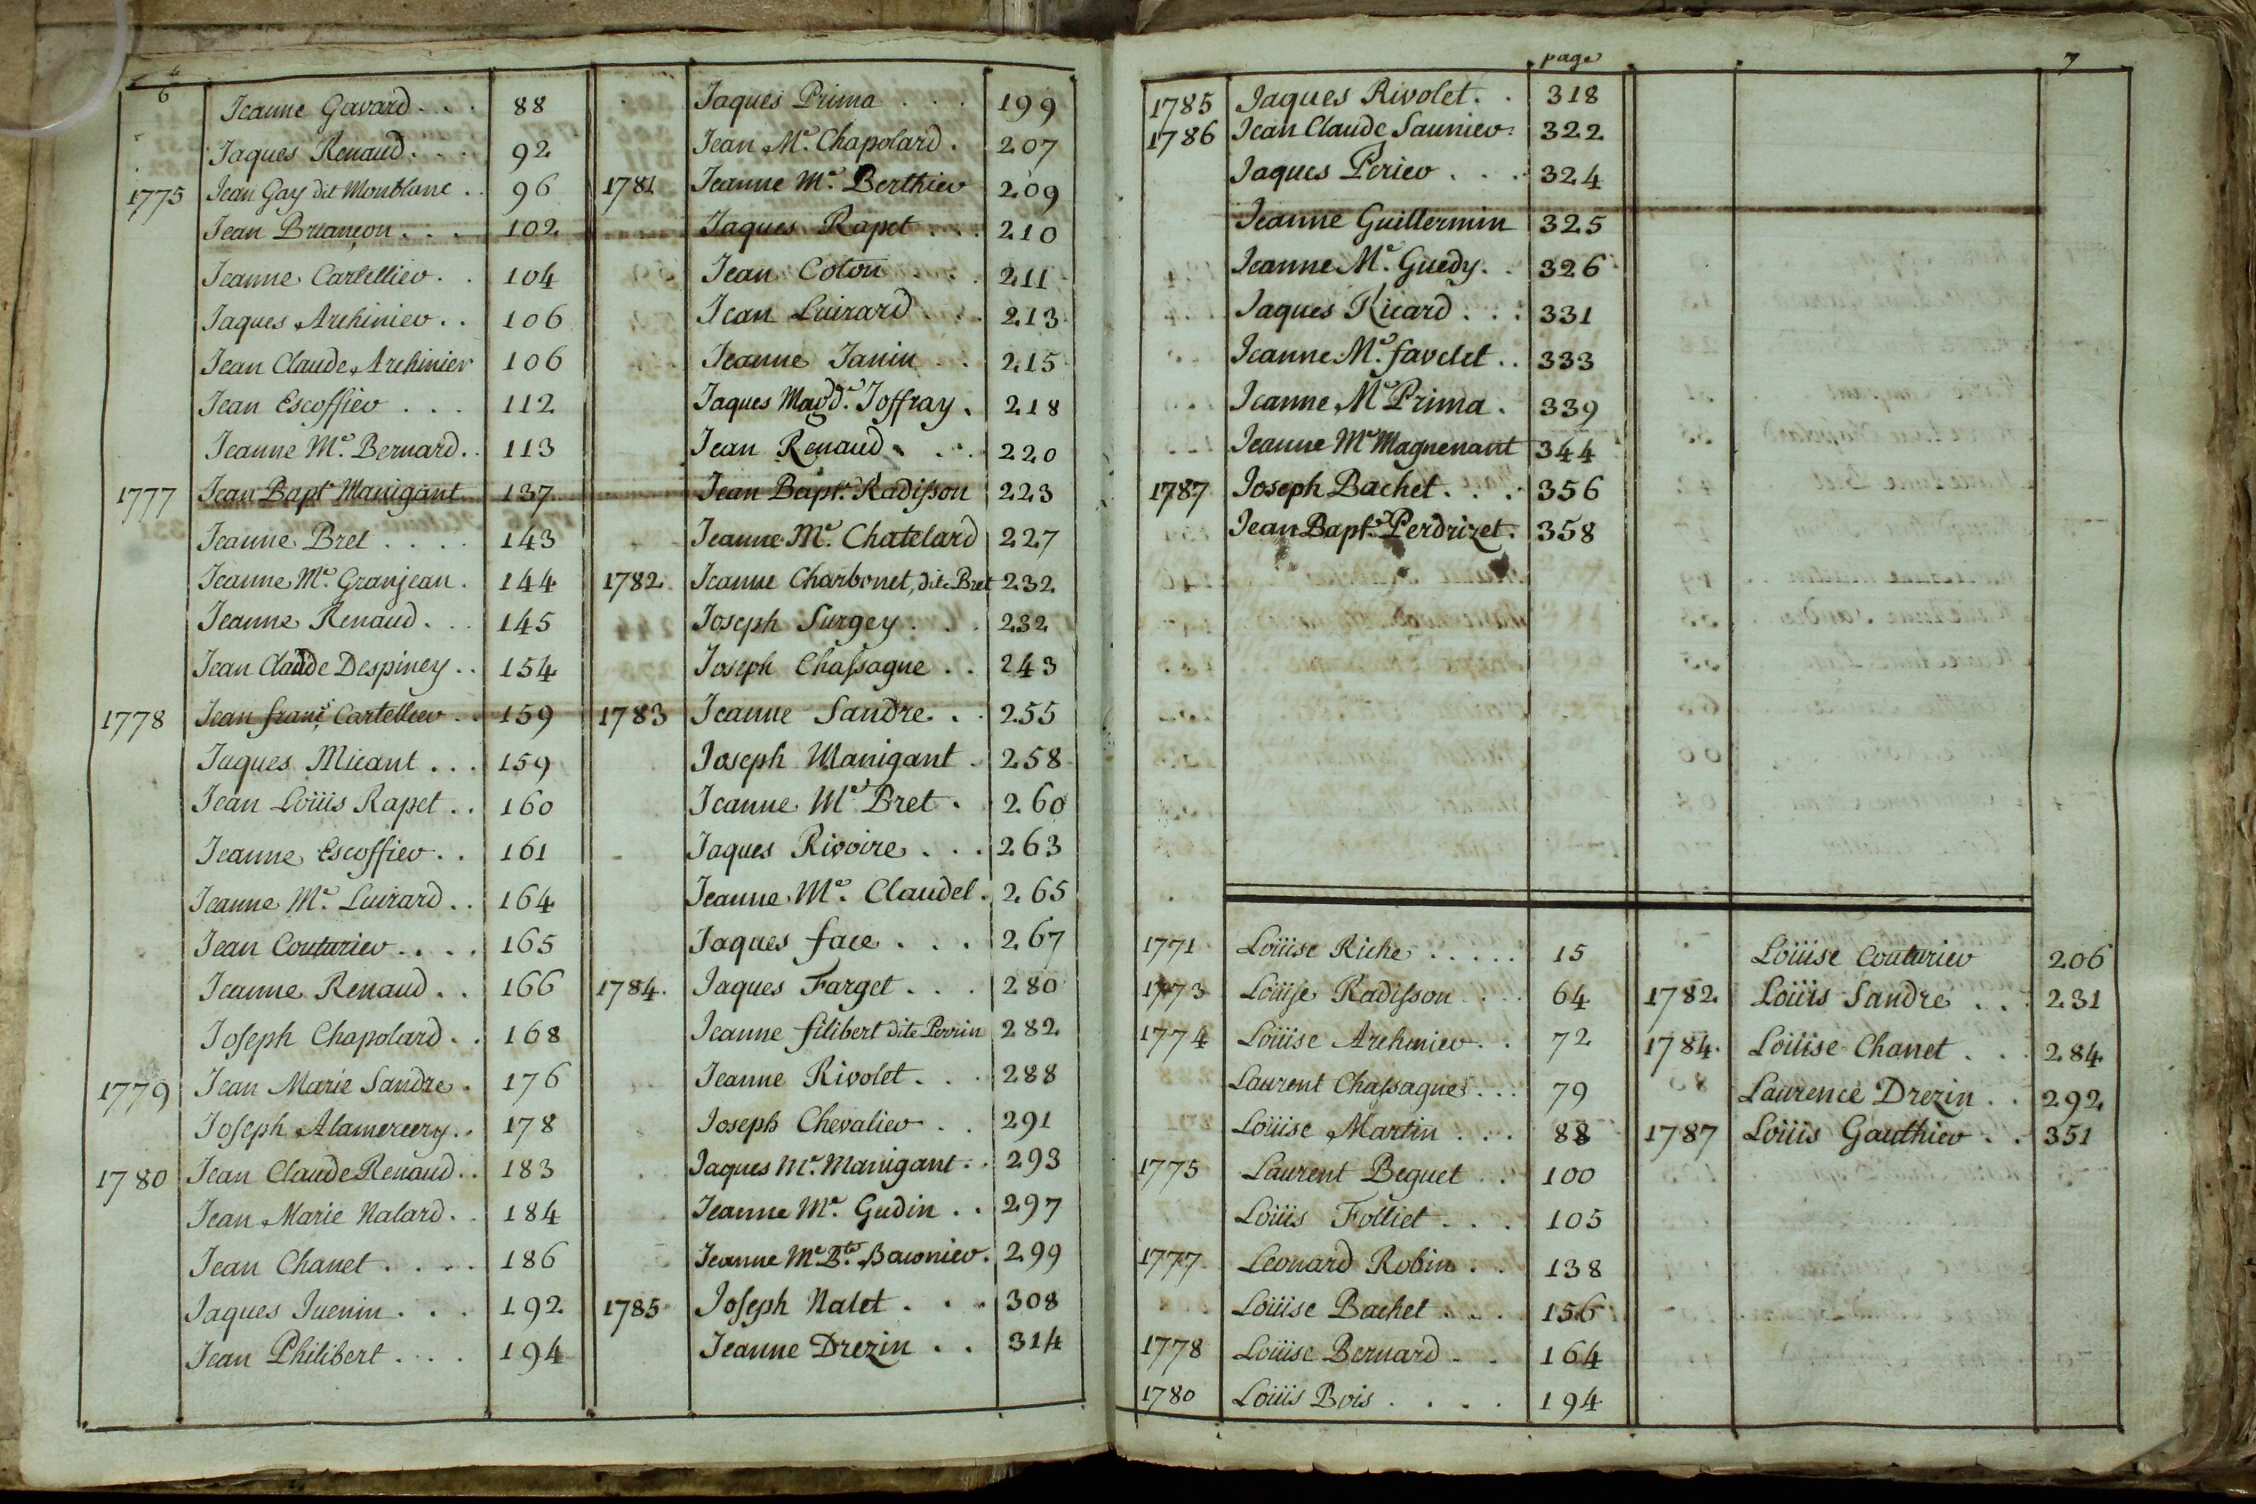 6
Jeanne Gavard . . . 88
Jaques Renaud . . . 92
1775 Jean Gay dit Montblanc . . 96
Jean Briançon . . . 102
Jeanne Cartellier . . 104
Jaques Archinier . . 106
Jean Claude Archinier 106
Jean Escoffier . . . 112
Jeanne Me. Bernard . . 113
1777 Jean Bapt. Manigant 137
Jeanne Bret . . . . 143
Jeanne Me. Granjean . 144
Jeanne Renaud . . . 145
Jean Claude Despiney . . 154
1778 Jean franç Cartellier . . 159
Jaques Micant . . . 159
Jean Loüis Rapet . . 160
Jeanne Escoffier . . 161
Jeanne Me. Luirard . . 164
Jean Couturier . . . . 165
Jeanne Renaud . . 166
Joseph Chapolard . . 168
1779 Jean Marie Sandre . 176
Joseph Alamercery . . 178
1780 Jean Claude Renaud . . 183
Jean Marie Nalard . . 184
Jean Chanet . . . . 186
Jaques Juenin . . . 192
Jean Philibert . . . . 194
Jaques Prima . . . 199
Jean Me. Chapolard . 207
1781 Jeanne Me. Berthier 209
Jaques Rapet . . . 210
Jean Coton . . . 211
Jean Luirard . . . 213
Jeanne Janin . . 215
Jaques Magd. Joffray . 218
Jean Renaud . . . 220
Jean Bapt. Radisson 223
Jeanne Me. Chatelard 227
1782 Jeanne Charbonet, dite Bret 232
Joseph Surgey . . . 232
Joseph Chassagne . . 243
1783 Jeanne Sandre . . 255
Joseph Manigant . 258
Jeanne Me Bret . 260
Jaques Rivoire . . . 263
Jeanne Me. Claudel . 265
Jaques face . . . 267
1784. Jaques Farget . . . 280
Jeanne filibert dite Perrin 282
Jeanne Rivolet . . . 288
Joseph Chevalier . . 291
Jaques Me. Manigant . . 293
Jeanne Me. Gudin . . 297
Jeanne Me Bte. Baronier . 299
1785 Joseph Nalet . . . 308
Jeanne Drezin . . 314
page
7
1785 Jaques Rivolet . . 318
1786 Jean Claude Saunier . 322
Jaques Perier . . . 324
Jeanne Guillermin 325
Jeanne Me. Guedy . . 326
Jaques Ricard . . . 331
Jeanne Me. favelet . . 333
Jeanne Me Prima . 339
Jeanne Me Magnenant 344
1787 Joseph Bachet . . . 356
Jean Bapt. Perdrizet . 358
1771 Loüise Riche . . . . . 15
1773 Loüise Radisson . . . 64
1774 Loüise Archinier . . 72
Laurent Chassagne . . . 79
Loüise Martin . . . 88
1775 Laurent Beguet . . 100
Loüis Folliet . . . 105
1777 Leonard Robin . . 138
Loüise Bachet . . . 156
1778 Loüise Bernard . . 164
1780 Loüis Bois . . . . 194
Loüise Couturier 206
1782 Loüis Sandre . . 231
1784. Loüise Chanet . . . 284
Laurence Drezin . . 292
1787 Loüis Gauthier . . 351